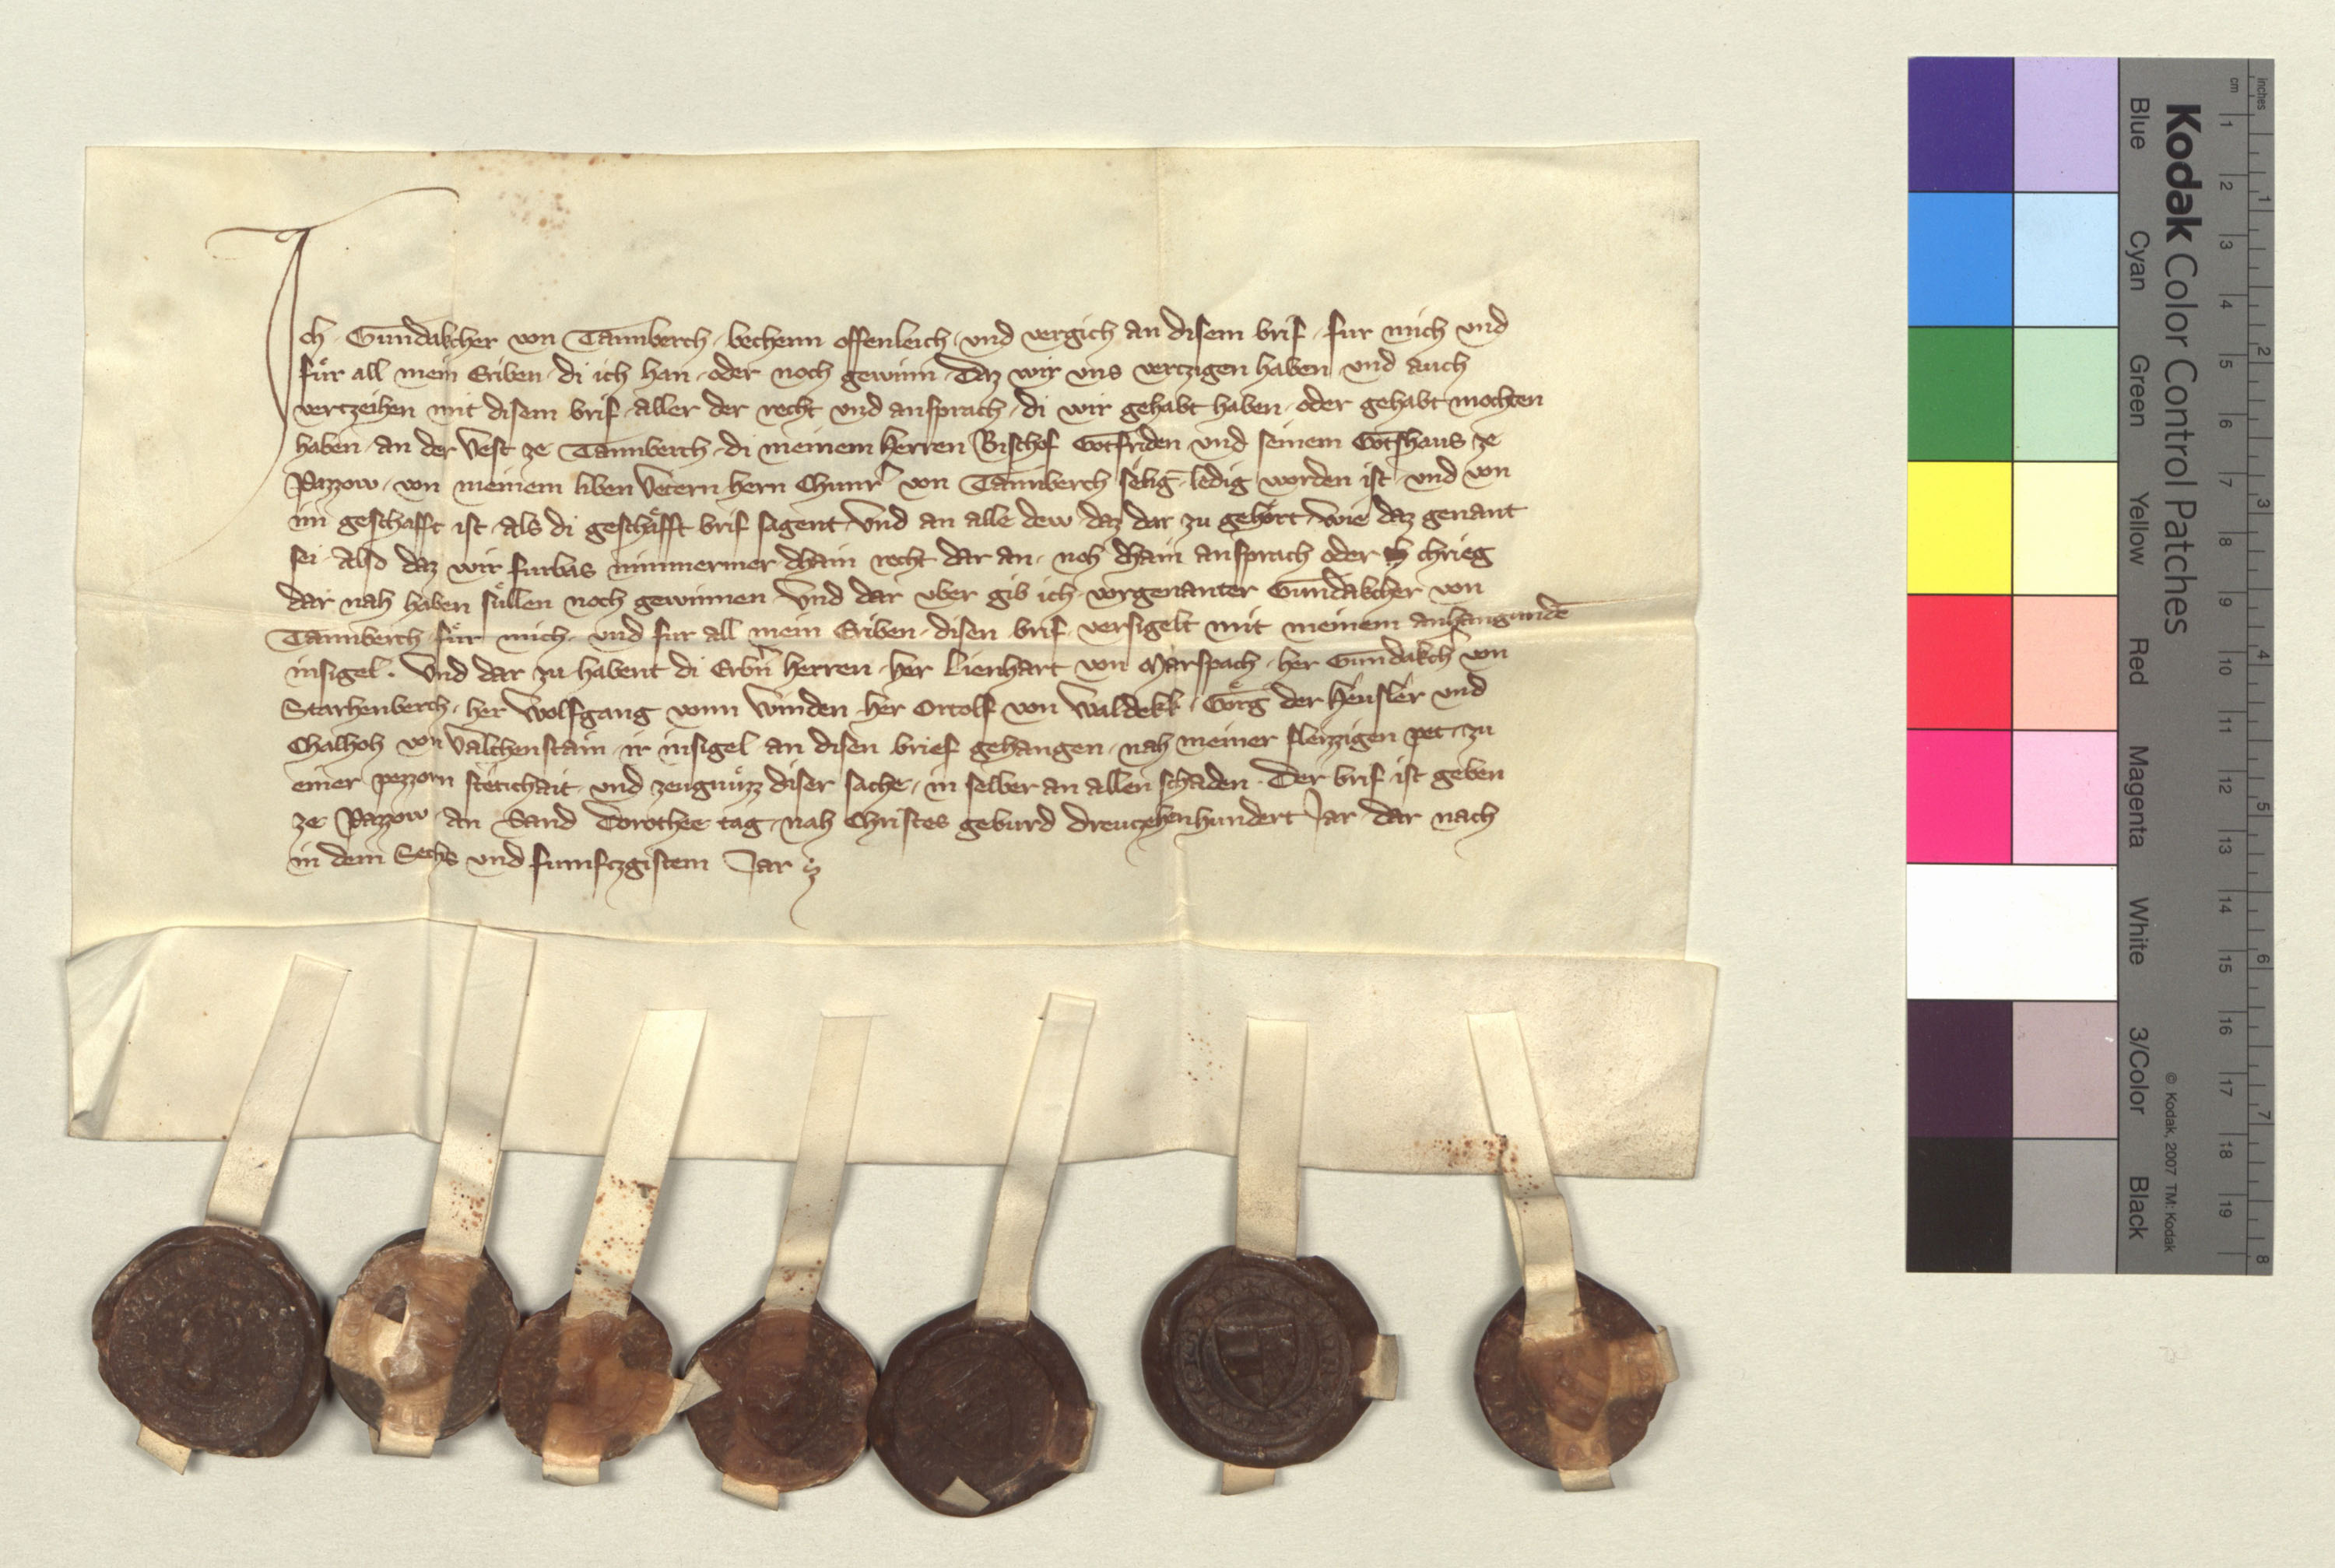 Ich Gundakcher von Tannberch bechenn offenleich und vergich an disem brif fur mich und
fuͤr all mein Eriben di ich han oder noch gewinn Daz wir uns vertzigen haben und auch
vertzeihen mit disem brif aller der recht und ansprach di wir gehabt haben oder gehabt mochten
haben an der Vest ze Tannberch di meinem herren Bischof Gotfriden und seinem Gotshaus ze
Pazzow von meinem liben Vetern hern Chunr von Tannberch selig ledig worden ist und von
im geschafft ist als di geschaͤfft brif sagent und an alle dew daz dar zu gehoͤrt wie daz genant
sei Also daz wir furbas nimmermer dhain recht dar an noh dhain ansprach oder chrieg
dar nah haben suͤllen noch gewinnen Und dar uber gib ich vorgenanter Gundakcher von
Tannberch fuͤr mich und fur all mein Eriben disen brif versigelt mit meinem anhangunde
insigel. Und dar zu habent di Erbn herren her Lienhart von Marspach her Gundakch von
Starhenberch her Wolfgang vonn Winden her Ortolf von Waldekk Goͤrg der Heusler und
Chalhoh von Valchenstain ir insigel an disen brief gehangen nah meiner fleizzigen pet zu
einer pezzern stetichait und zeugnuͤzz diser sache in selber an allen schaden Der brif ist geben
ze Pazzow an Sand Dorothee tag nah Christes geburd dreutzehenhundert Jar dar nach
in dem Sechs und fumftzgistem Jar
Kodak Color Control Patches
Blue Cyan Green Yellow Red Magenta White 3/Color Black
© Kodak, 2007 TM: Kodak
inches 1 2 3 4 5 6 7 8
cm 1 2 3 4 5 6 7 8 9 10 11 12 13 14 15 16 17 18 19